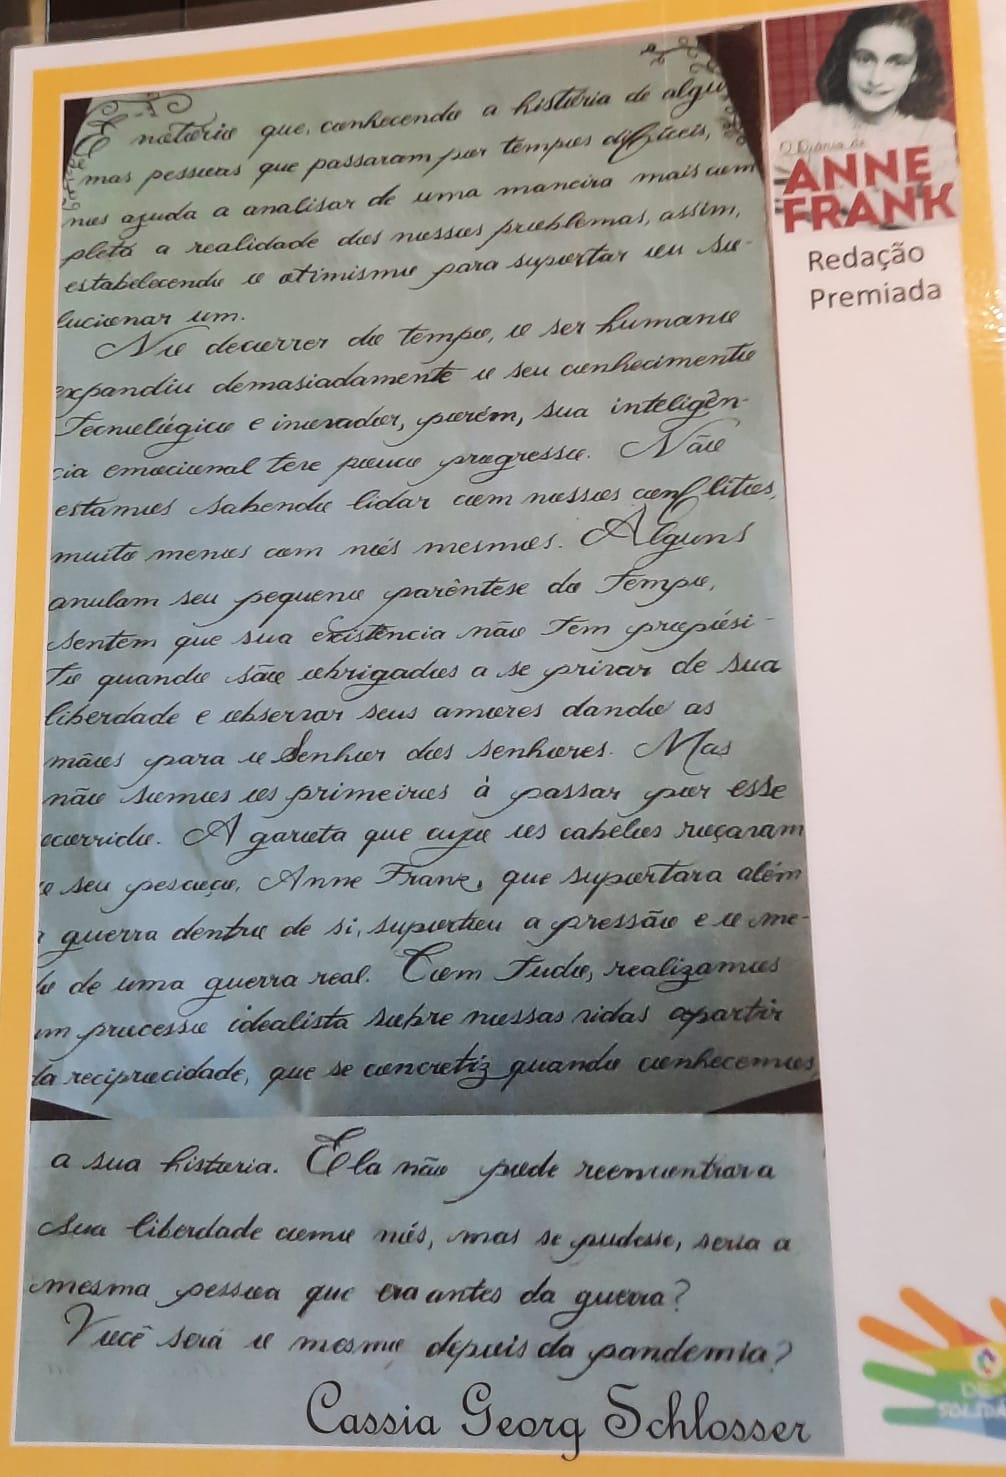 É notório que, conhecendo a história de algu
mas pessoas que passaram por tempos difíceis,
nos ajuda a analisar de uma maneira mais com
pleta a realidade dos nossos problemas, assim,
estabelecendo o otimismo para suportar ou so-
lucionar um.
No decorrer do tempo, o ser humano
expandiu demasiadamente o seu conhecimento
Tecnológico e inovador, porém, sua inteligên-
cia emocional teve pouco progresso. Não
estamos sabendo lidar com nossos conflitos,
muito menos com nós mesmos. Alguns
anulam seu pequeno parêntese do Tempo,
sentem que sua existência não Tem propósi-
to quando são obrigados a se privar de sua
liberdade e observar seus amores dando as
mãos para o Senhor dos senhores. Mas
não somos os primeiros à passar por esse
ocorrido. A garota que cujo os cabelos roçaram
o seu pescoço, Anne Frank, que suportara além
a guerra dentro de si, suportou a pressão e o me-
do de uma guerra real. Com Tudo, realizamos
um processo idealista sobre nossas vidas apartir
da reciprocidade, que se concretiz quando conhecemos
a sua história. Ela não pode reencontrar a
sua liberdade como nós, mas se pudesse, seria a
mesma pessoa que era antes da guerra?
Você será o mesmo depois da pandemia?
Cassia Georg Schlosser
O Diário de
ANNE
FRANK
Redação
Premiada